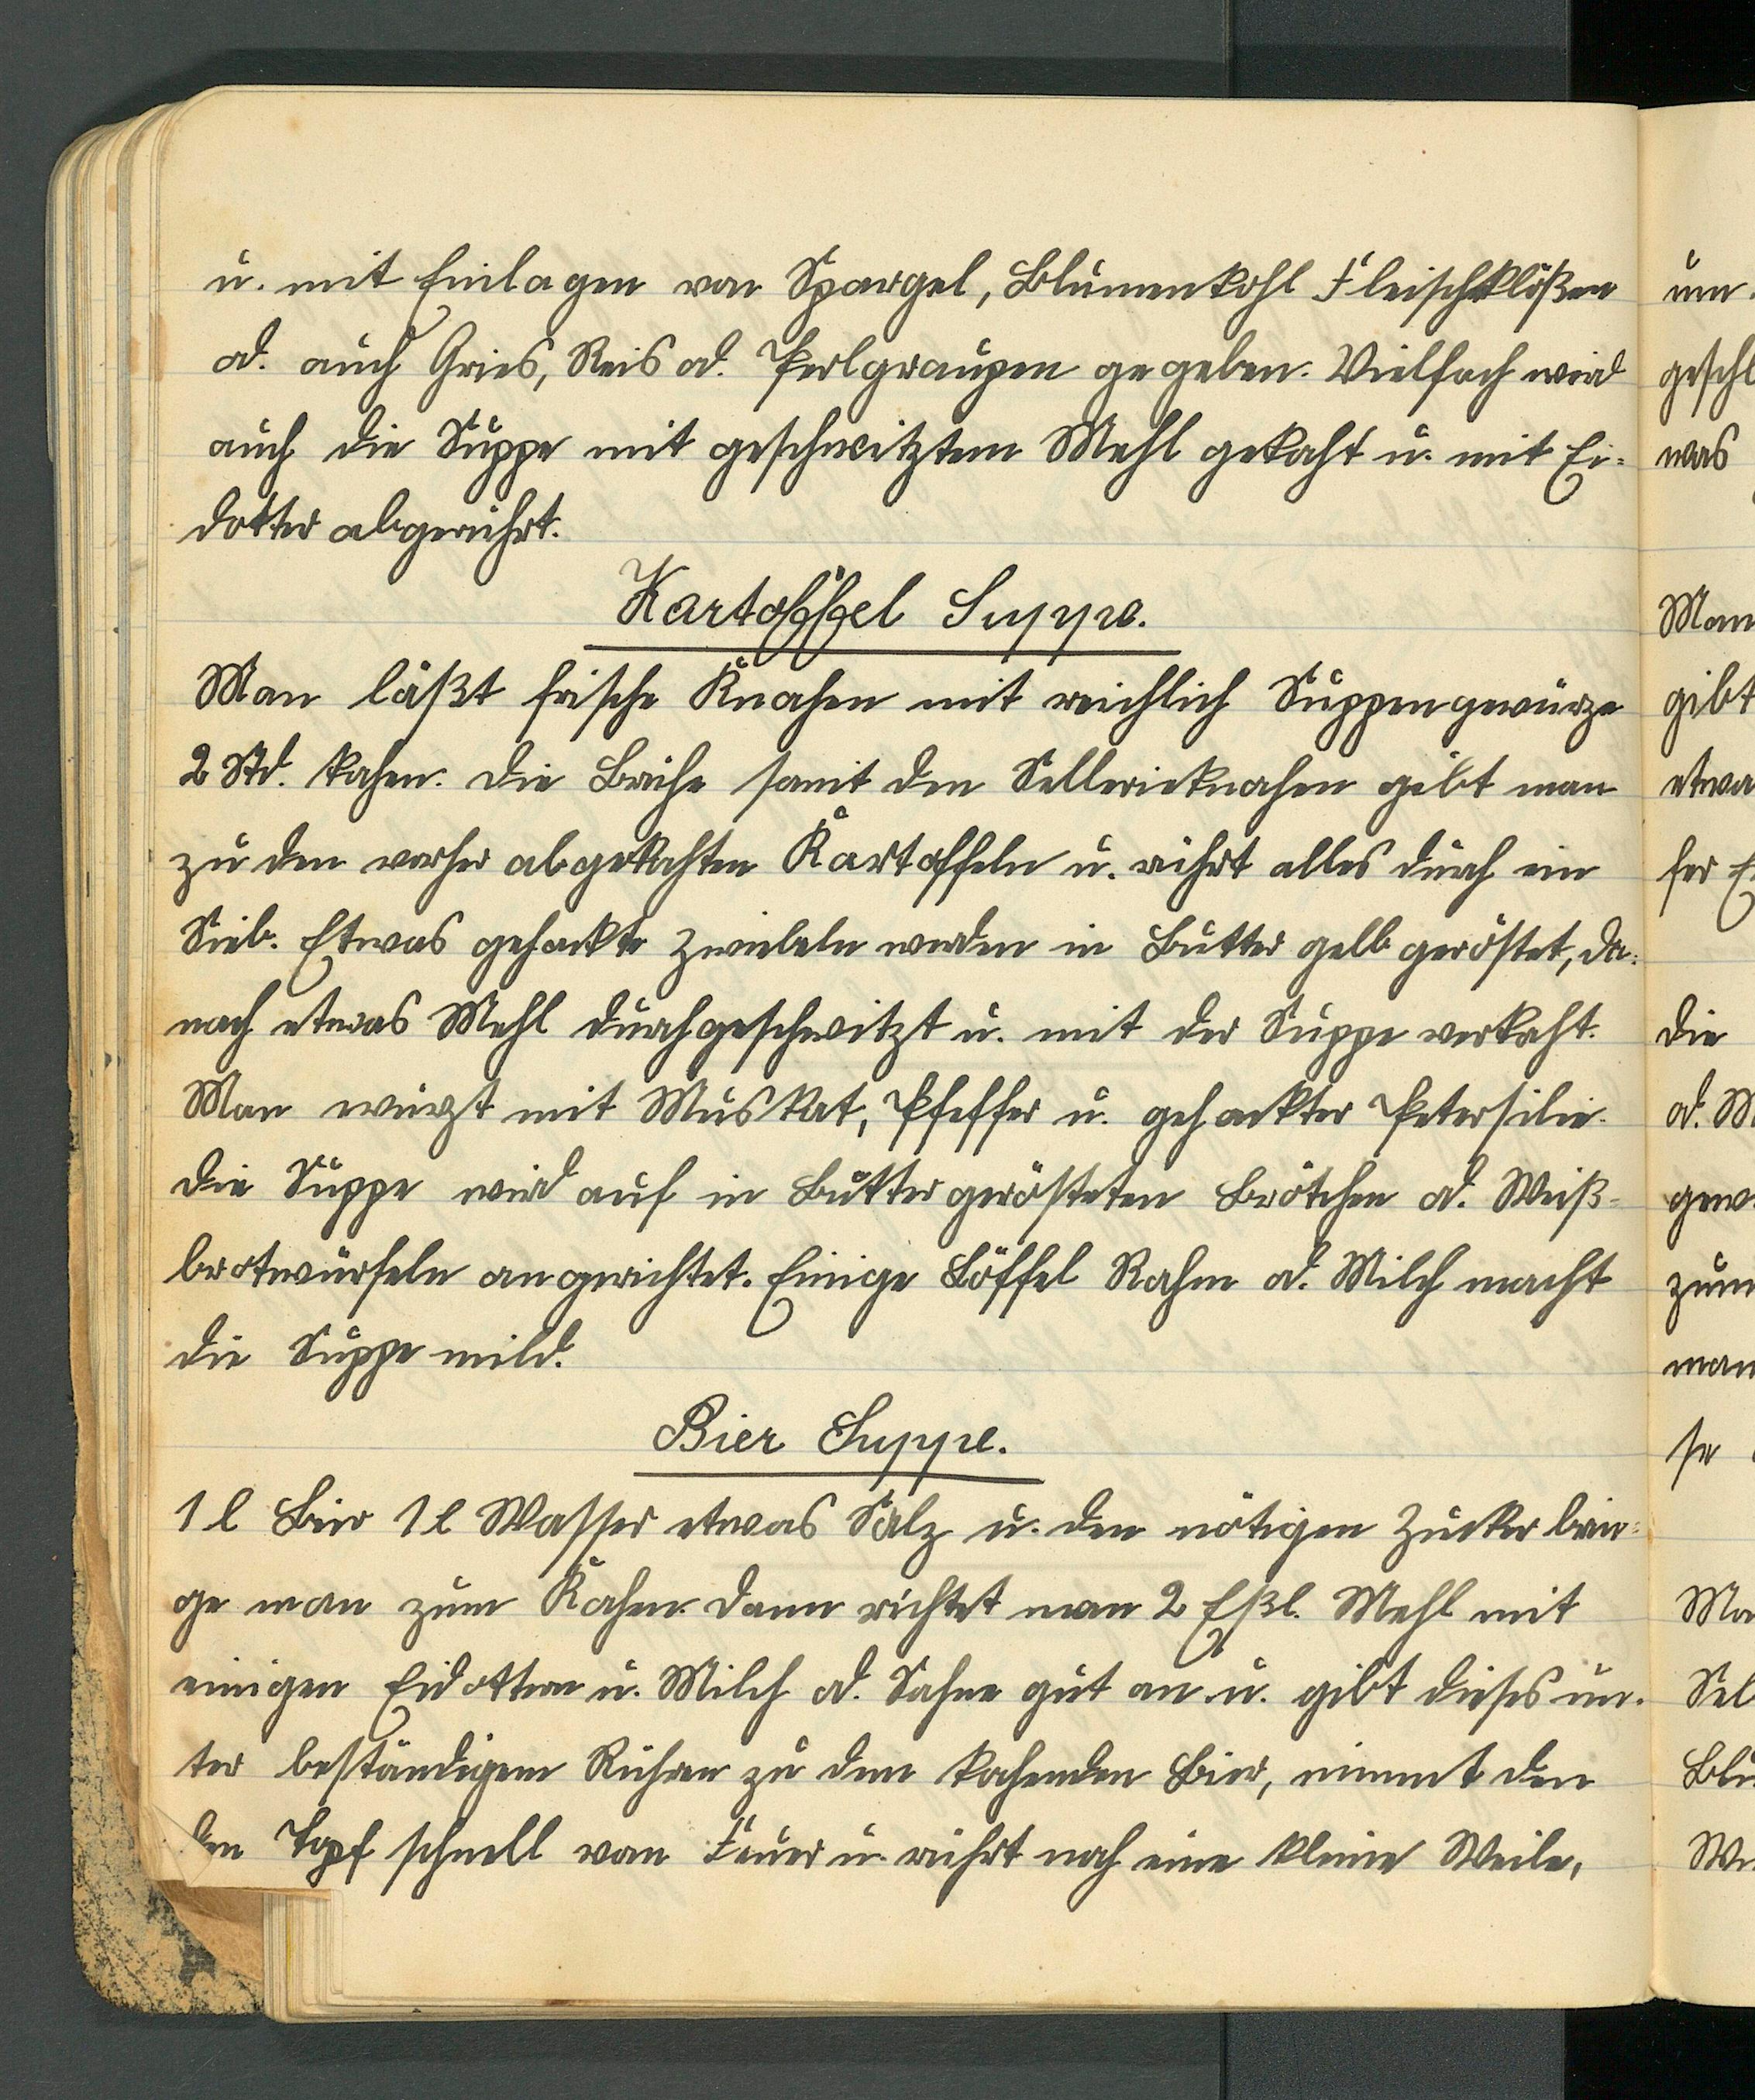 u. mit Einlagen von Spargel, Blumenkohl Fleischklößen
od. auch Gries, Reis od. Perlgraupen gegeben. Vielfach wird
auch die Suppe mit geschwitztem Mehl gekocht u. mit Ei-
dotter abgerührt.
Kartoffel Suppe.
Man läßt frische Knochen mit reichlich Suppengewürze
2 Std. kochen. Die Brühe samit den Sellerieknochen gibt man
zu den vorher abgekochten Kartoffeln u. rührt alles durch ein
Sieb. Etwas gehackte Zwiebeln werden in Butter gelb geröstet, da-
nach etwas Mehl durchgeschwitzt u. mit der Suppe verkocht.
Man würzt mit Muskat, Pfeffer u. gehackter Petersilie.
Die Suppe wird auf in Butter gerösteten Brötchen od. Weiß-
brotwürfeln angerichtet. Einige Löffel Rahm od. Milch macht
die Suppe mild.
Bier Suppe.
1 l Bier 1 l Wasser etwas Salz u. den nötigen Zucker brin-
ge man zum Kochen. Dann richtet man 2 Eßl. Mehl mit
einigen Eidottern u. Milch od. Sahne gut an u. gibt dieses un-
ter beständigem Rühren zu dem kochenden Bier, nimmt den
den Topf schnell vom Feuer u. rührt noch eine kleine Weile,
um
geschl
was
Man
gibt
etwa
die
od. M
gew
zum
man
se
Ma
Sel
Blu